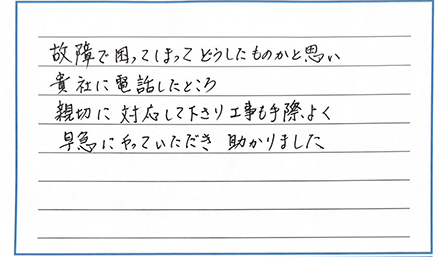 故障で困ってしまって どうしたものかと思い
貴社に電話したところ
親切に 対応して下さり 工事も手際よく
早急にやっていただき 助かりました